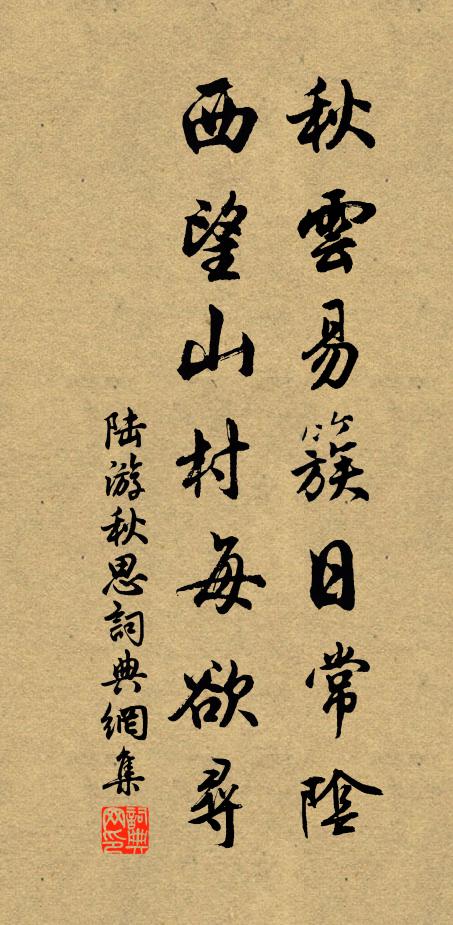 秋雲易簇日常陰
西望山村每欲尋
陆游秋思詞典網集
詞典網印